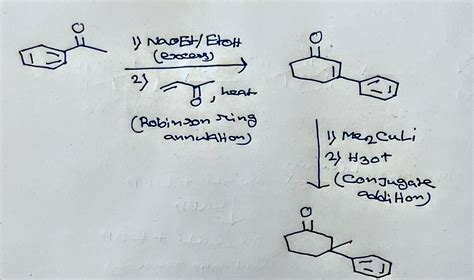 O
1) NaOEt/EtOH
(excess)
2)
O
, heat
(Robinson ring
annulation)
O
1) Me2CuLi
2) H3O+
(Conjugate
addition)
O